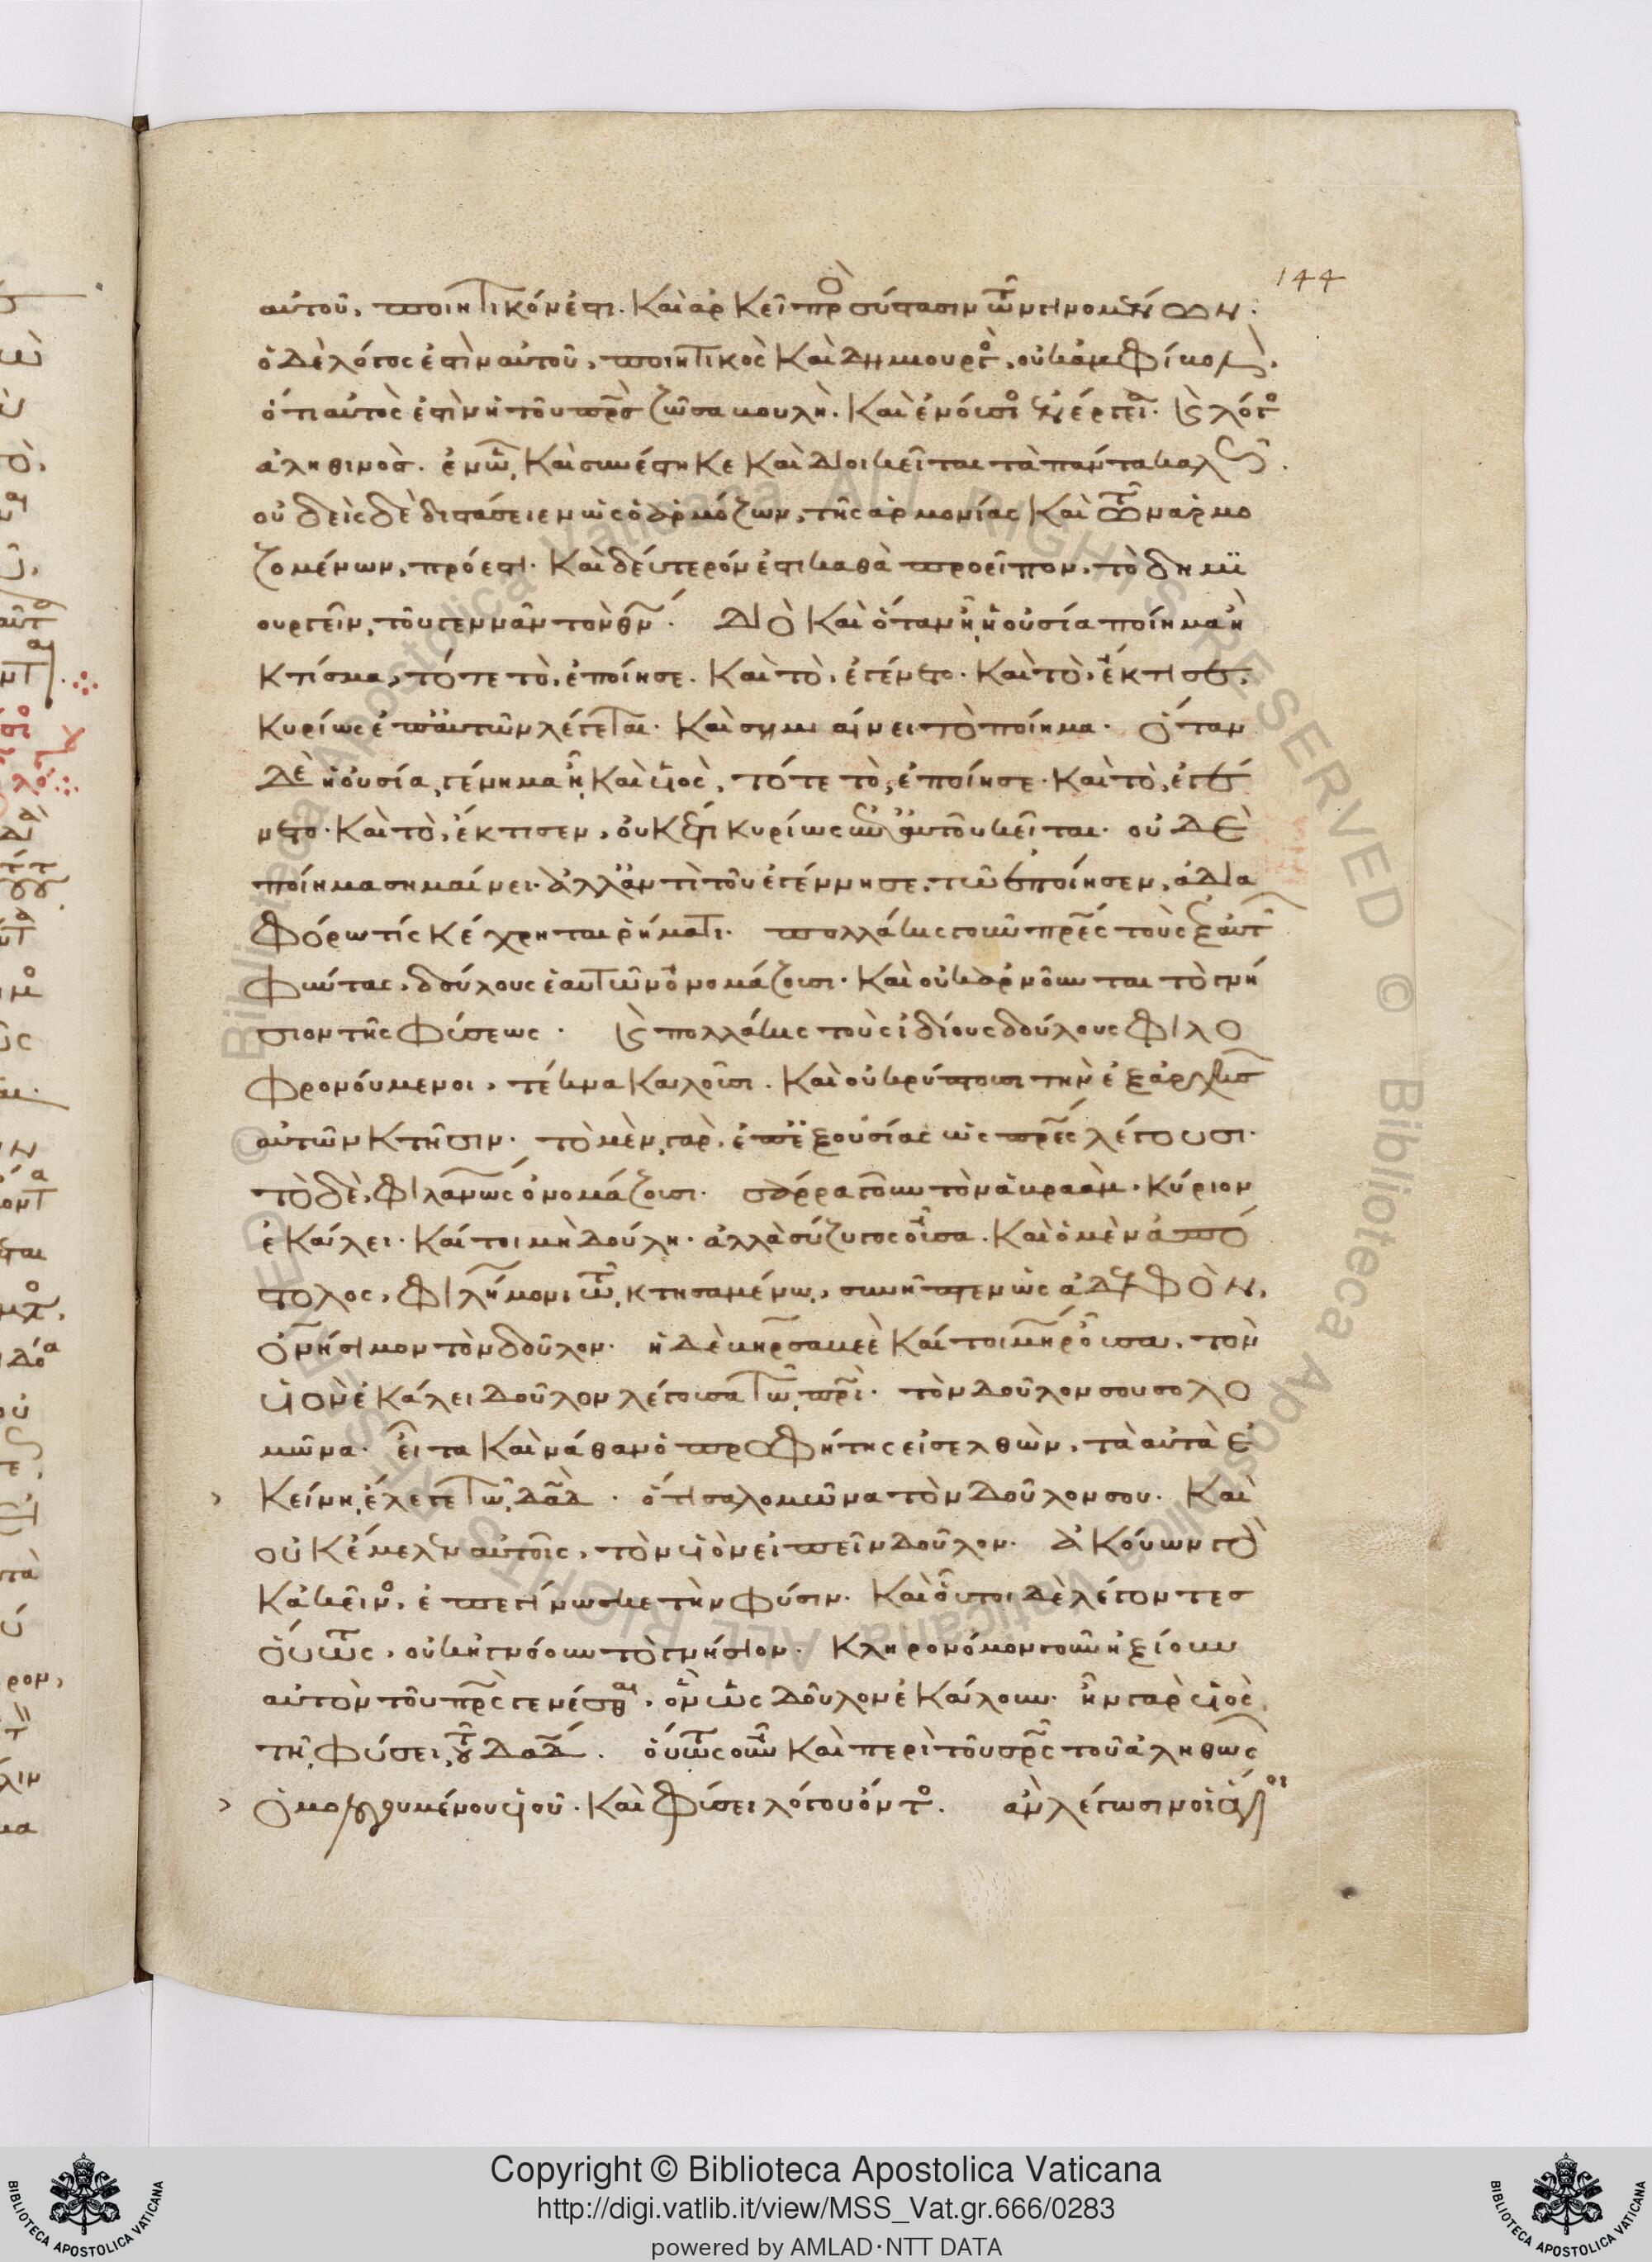 144
αὐτοῦ, ποιητικόν ἐστι. καὶ ἀρκεῖ πρὸς σύστασιν τῶν γινομένων.
ὁ δὲ λόγος ἐστὶν αὐτοῦ, ποιητικὸς καὶ δημιουργὸς, οὐκ ἀμφίβολον,
ὅτι αὐτὸς ἐστὶν ἡ τοῦ πρς ζῶσα βουλὴ. καὶ ἐνούσιος ἐνέργεια. καὶ λόγος
ἀληθινὸς. ἐν ᾧ, καὶ συνέστηκε καὶ διοικεῖται τὰ πάντα καλῶς.
οὐδεὶς δὲ διστάσειεν ὡς ὁ ἁρμόζων, τῆς ἁρμονίας καὶ τῶν ἁρμο
ζομένων, πρόεστι. καὶ δεύτερόν ἐστι καθὰ προεῖπον, τὸ δημι
ουργεῖν, τοῦ γεννᾶν τὸν θν. διὸ καὶ ὅταν ᾖ ἡ οὐσία ποίημα ἢ
κτίσμα, τότε τὸ, ἐποίησε. καὶ τὸ, ἐγένετο. καὶ τὸ, ἔκτισεν,
κυρίως ἐπ' αὐτῶν λέγεται. καὶ σημαίνει τὸ ποίημα. ὅταν
δὲ ἡ οὐσία γέννημα ᾖ, καὶ υἱὸς, τότε τὸ, ἐποίησε. καὶ τὸ, ἐγέ
νετο. καὶ τὸ, ἔκτισεν, οὐκ ἔτι κυρίως ἐπ' αὐτοῦ κεῖται. οὐδὲ
ποίημα σημαίνει. ἀλλ' ἀντὶ τοῦ ἐγέννησε, τῷ ἐποίησεν, ἀδια
φόρω τίς κέχρηται ρήματι. πολλάκις γοῦν πρες τοὺς ἐξ αὐτῶν
φύντας, δούλους ἑαυτῶν ὀνομάζουσι. καὶ οὐκ ἀρνοῦνται τὸ γνή
σιον τῆς φύσεως. καὶ πολλάκις τοὺς ἰδίους δούλους φιλο
φρονούμενοι, τέκνα καλοῦσι. καὶ οὐ κρύπτουσι τὴν ἐξ ἀρχῆς
αὐτῶν κτῆσιν. τὸ μὲν γὰρ, ἐπ' ἐξουσίας ὡς πρες λέγουσι.
τὸ δὲ, φιλανως ὀνομάζουσι. σάρρα γοῦν τὸν ἀβραὰμ, κύριον
ἐκάλει. καίτοι μὴ δούλη. ἀλλὰ σύζυγος οὖσα. καὶ ὁ μὲν ἀπό
στολος, φιλήμονι τῷ κτησαμένω, συνῆπτεν ὡς ἀδελφὸν,
ὀνήσιμον τὸν δοῦλον. ἡ δὲ βηρσαβεὲ καίτοι μηρ οὖσα, τὸν
υἱὸν ἐκάλει δοῦλον λέγουσα τῶ πρι. τὸν δοῦλον σου σολο
μῶνα. εἶτα καὶ νάθαν ὁ προφήτης εἰσελθὼν, τὰ αὐτὰ ἐ
κείνη, ἔλεγε τῶ δαδ. ὅτι σαλομῶνα τὸν δοῦλον σου. καὶ
οὐκ ἔμελεν αὐτοῖς, τὸν υἱὸν εἰπεῖν δοῦλον. ἀκούων γὸ
κἀκεῖνος, ἐπεγίνωσκε τὴν φύσιν. καὶ οὗτοι δὲ λέγοντες
οὕτως, οὐκ ἠγνόουν τὸ γνήσιον. κληρονόμον γοῦν ἠξίουν
αὐτὸν τοῦ πρς γενέσθαι, ὃν ὡς δοῦλον ἐκάλουν. ἦν γὰρ υἱὸς
τῇ φύσει τοῦ δαδ. οὕτως οὖν καὶ περὶ τοῦ πρς τοῦ ἀληθῶς
ὁμολογουμένου υἱοῦ. καὶ φύσει λόγου ὄντος. ἂν λέγωσιν οἱ ἅγιοι
Copyright © Biblioteca Apostolica Vaticana
http://digi.vatlib.it/view/MSS_Vat.gr.666/0283
powered by AMLAD·NTT DATA